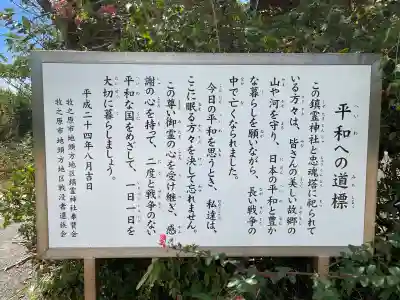 平和への道標
この鎮霊神社と忠魂塔に祀られて
いる方々は、皆さんの美しい故郷の
山や河を守り、日本の平和と豊か
な暮らしを願いながら、長い戦争の
中で亡くなられました。
今日の平和を思うとき、私達は、
ここに眠る方々を決して忘れません。
この尊い御霊の心を受け継ぎ、感
謝の心を持って、二度と戦争のない
平和な国をめざして、一日一日を
大切に暮らしましょう。
平成二十四年八月吉日
牧之原市地頭方地区鎮霊神社奉賛会
牧之原市地頭方地区戦没者遺族会